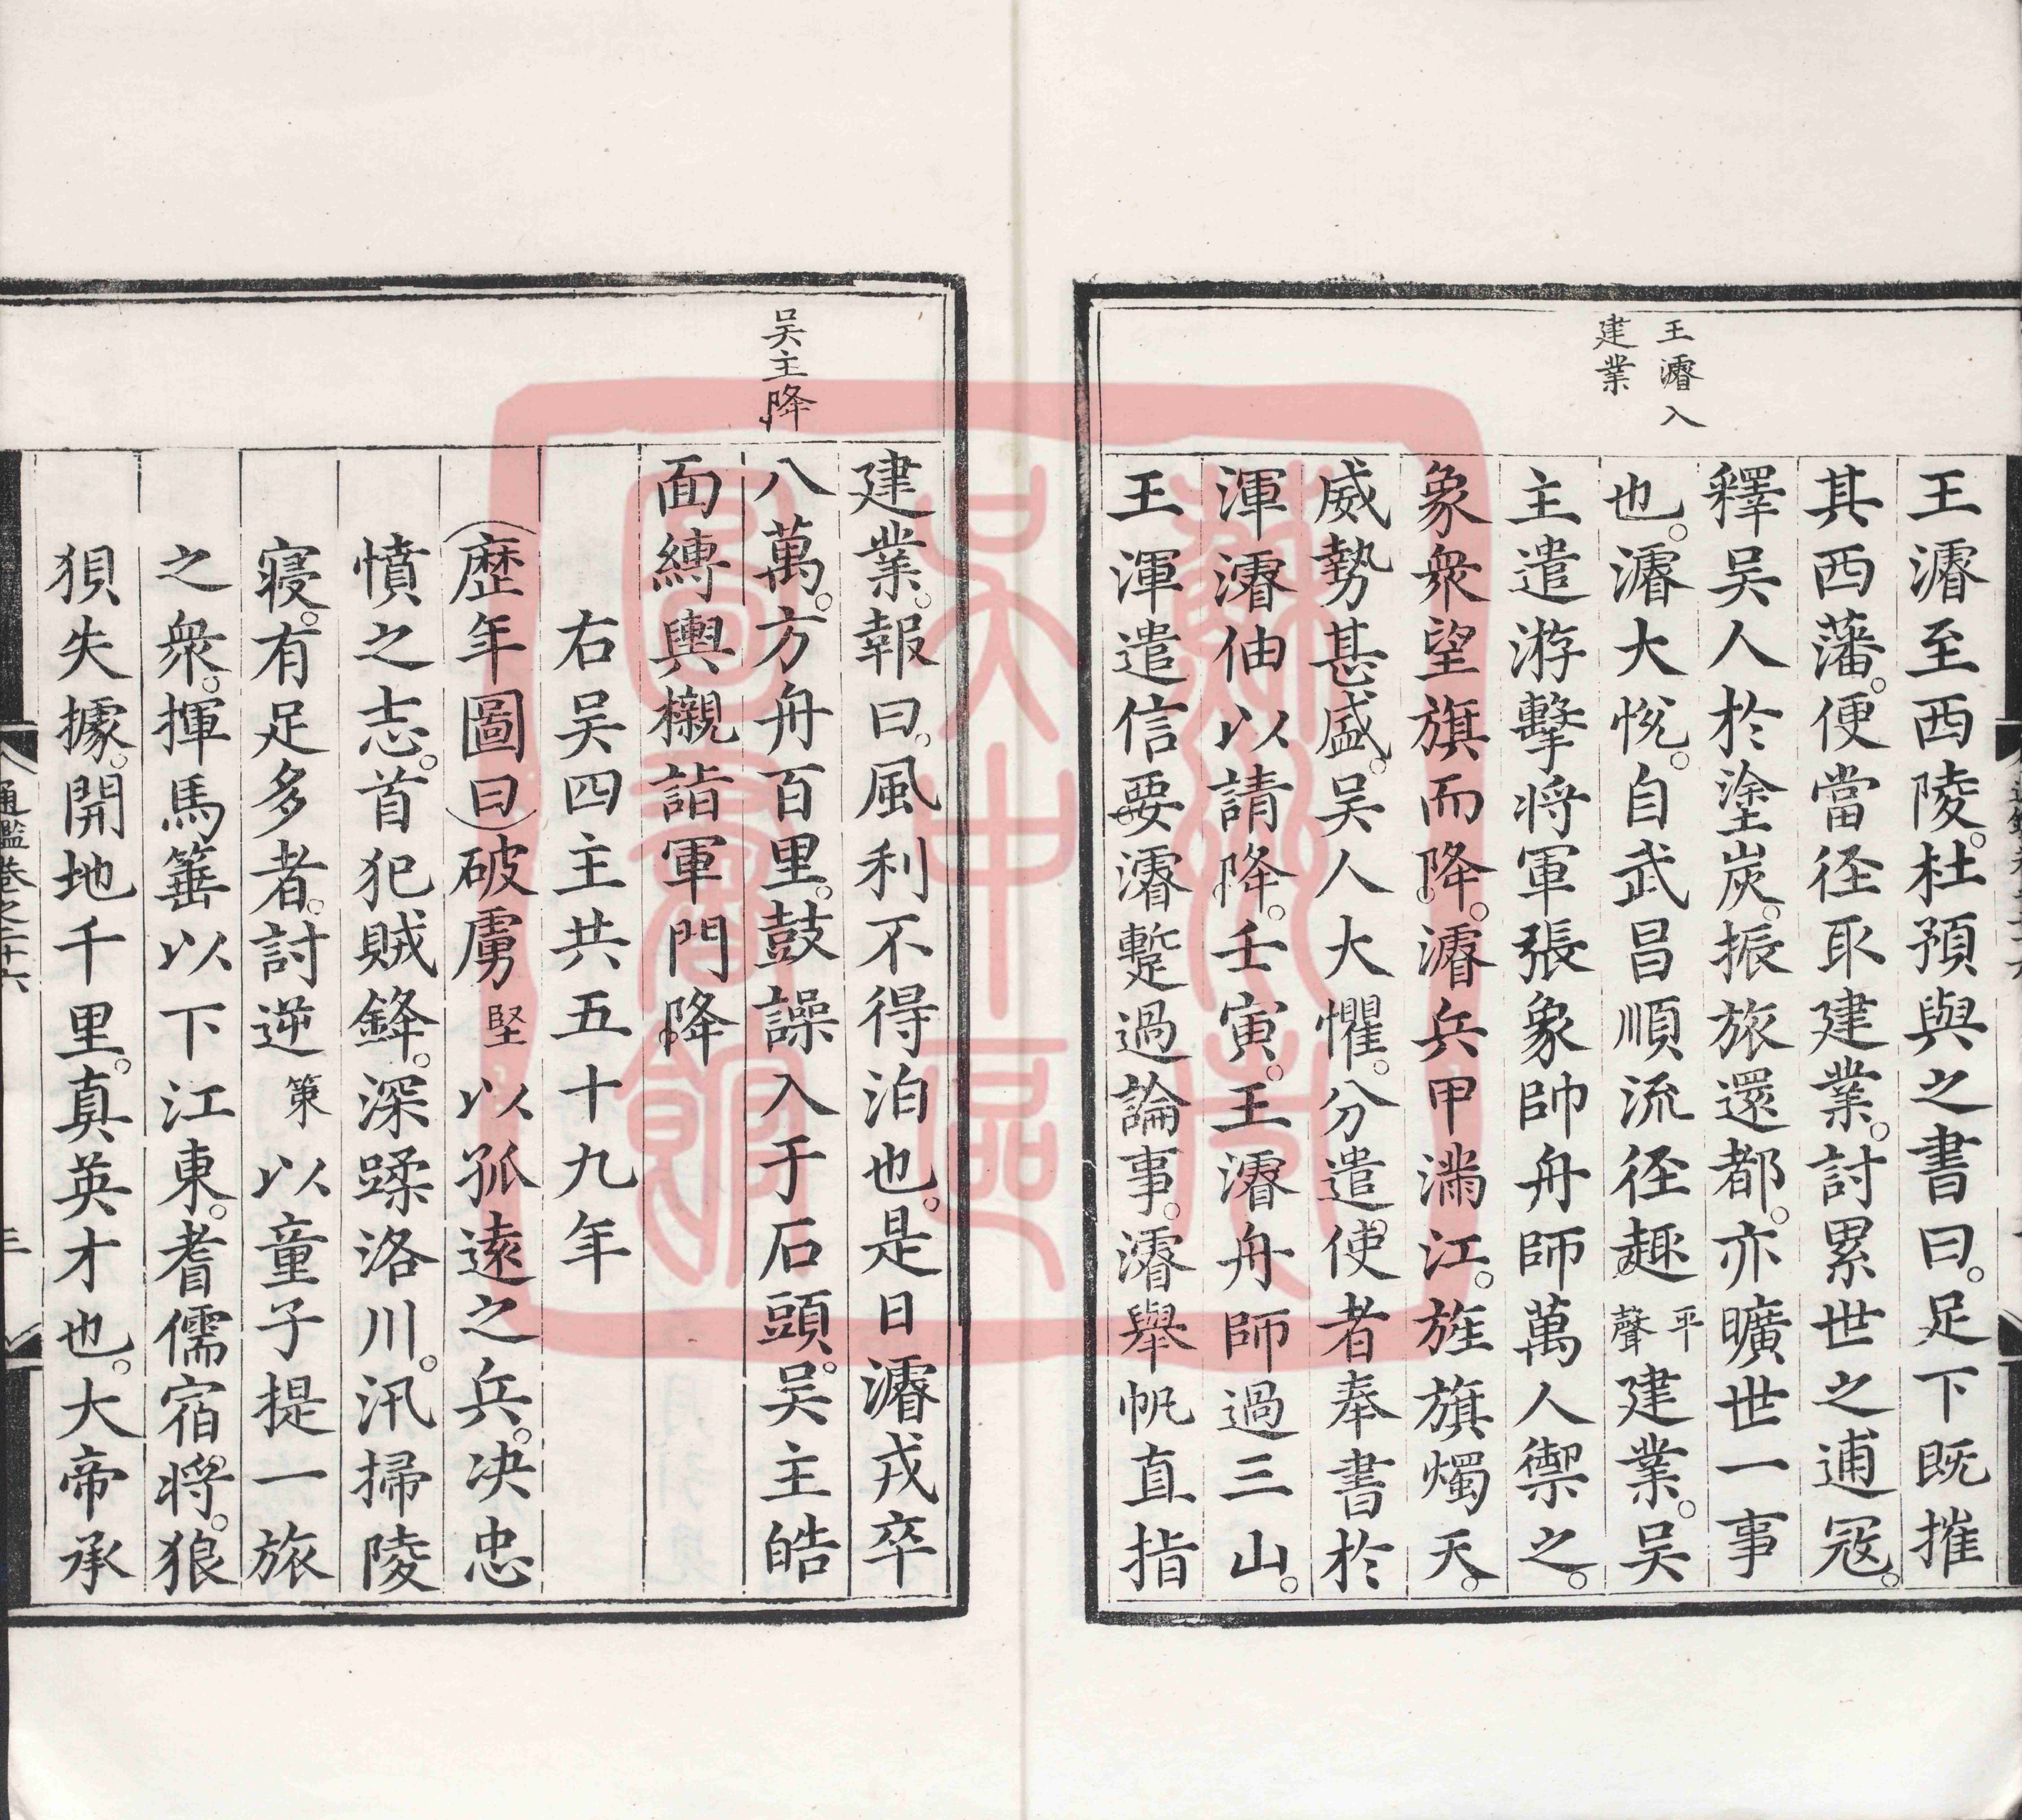 王濬入
建業
王濬至西陵。杜預與之書曰。足下既摧
其西藩。便當径取建業。討累世之逋冦。
釋吴人於塗炭。振旅還都。亦曠世一事
也。濬大悅。自武昌順流径趣平聲建業。吴
主遣游擊将軍張象帥舟師萬人禦之。
象衆望旗而降。濬兵甲滿江。旌旗燭天。
威勢甚盛。吴人大懼。分遣使者奉書於
渾濬伷以請降。壬寅。王濬舟師過三山。
王渾遣信要濬蹔過論事。濬舉帆直指
吴主降
建業。報曰。風利不得泊也。是日濬戎卒
八萬。方舟百里。鼓譟入于石頭。吴主皓
面縛輿櫬詣軍門降
右吴四主共五十九年
歷年圖曰破虜堅以孤遠之兵。决忠
憤之志。首犯賊鋒。深蹂洛川。汛掃陵
寢。有足多者。討逆策以童子提一旅
之衆。揮馬箠以下江東。耆儒宿將。狼
狽失據。開地千里。真英才也。大帝承
通鑑卷之二十六
蘇州市
吴中區
圖書館